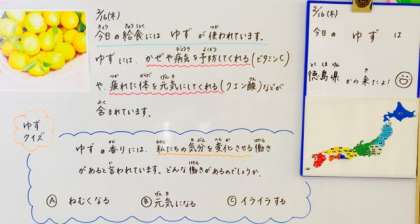 2/16(木)
今日の給食には ゆず が 使われています。
ゆず には、かぜや病気を予防してくれる(ビタミンC)
や、疲れた体を元気にしてくれる(クエン酸)などが
含まれています。
ゆず
クイズ
ゆず の 香りには、私たちの気分を変化させる働き
があると言われています。どんな働きがあるのでしょうか。
Ⓐ ねむくなる Ⓑ 元気になる Ⓒ イライラする
2/16(木)
今日の ゆず は
徳島県 から来たよ!